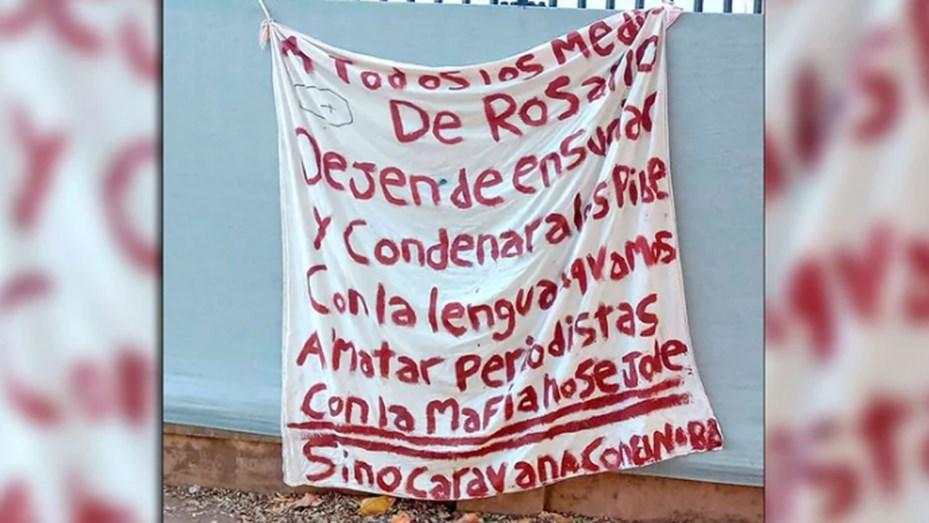 A Todos los Medi
De Rosario
Dejen de ensuciar
Y Condenar a los Pibe
Con la lengua q vamos
A Matar Periodistas
Con la Mafia no se Jode
Sino Caravana Con